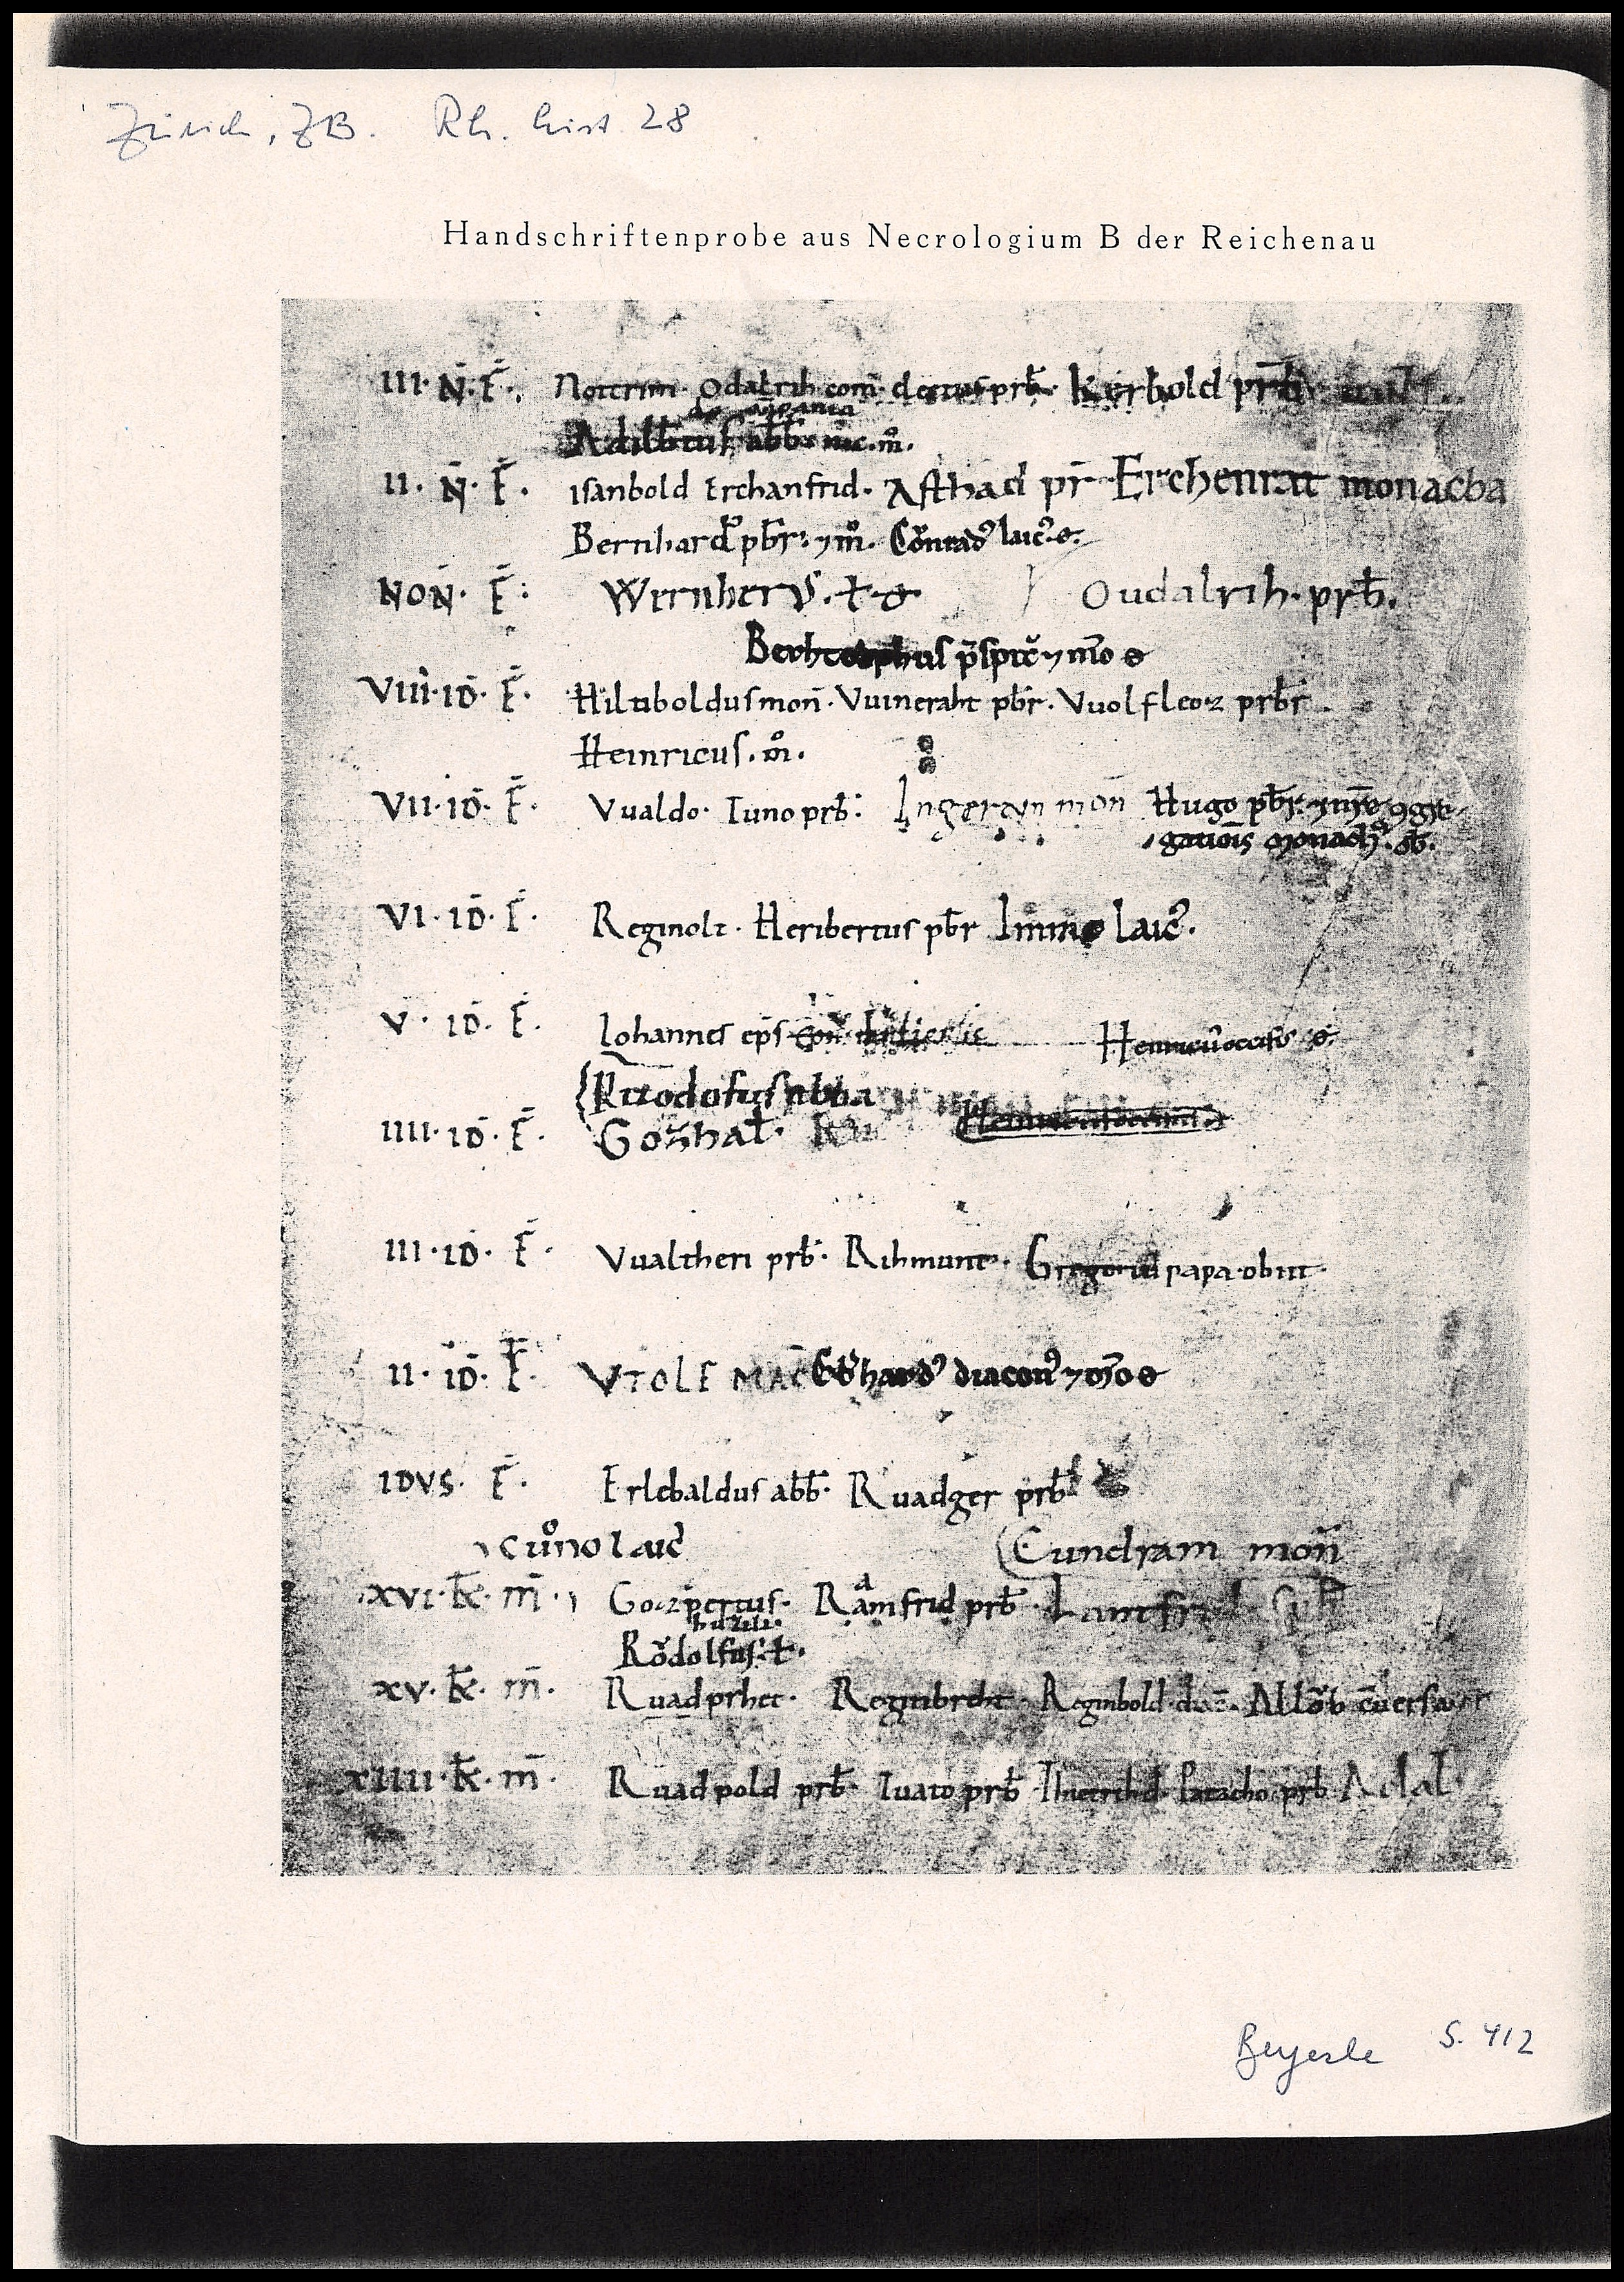 Zürich, ZB. Rh. hist 28
Handschriftenprobe aus Necrologium B der Reichenau
III · N̄ · F̄ · Notcrim · Odalrih com · prƀ · Kerhold prƀ
Adilƀtus abb m̊ ·
II · N̄ · F̄ · Isanbold Erchanfrid · Asthad pr̄ Erchenrat monacha
Bernhard᾽ pƀr · ⁊ m̊ · Cŏnrad᾽ laic᾽ · o ·
NON̄ · F̄ : Wernherꝰ · Oudalrih · prƀ ·
Berhtolphus p̄spit̄ ⁊ mo o
VIII · ID̄ · F̄ · Hiltiboldus mon̄ · Vuineraht pƀr · Vuolfleoz prƀr
Heinricus · m̊ ·
VII · ID̄ · F̄ · Vualdo · Iuno prƀ : Ingeram mon Hugo pƀr · ⁊ nr̄e ꝯgre
gatiois monach᾽ · oƀ ·
VI · ID̄ · F̄ · Reginolt · Heribertus pƀr Immo laic᾽ ·
V · ID̄ · F̄ · Iohannes ep̄s
Ruodolfus abba
IIII · ID̄ · F̄ · Gozhat ·
III · ID̄ · F̄ · Vualtheri prƀ · Rihmunt · Gregorius papa obiit
II · ID̄ · F̄ · VTOLF MAC Gebhard᾽ diacon᾽ ⁊ mo o
IDVS · F̄ · Erlebaldus abƀ · Ruadger prƀ
Cůno laic᾽ Cundram mon̄
XVI · kƚ · m̄ · Gozpertus · Ramfrid prƀ · Lantfrid
Rŏdolfus ·
XV · kƚ · m̄ · Ruadprhet · Reginbreht · Reginbold
XIIII · kƚ · m̄ · Ruadpold prƀ · Iuato prƀ · prƀ · Adal
Beyerle S. 412